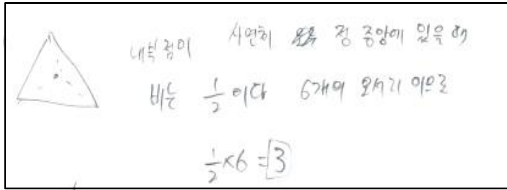 내부점이 자연히 정 중앙에 있을 때
비는 1/2 이다 6개의 모서리 이므로
1/2 × 6 = 3